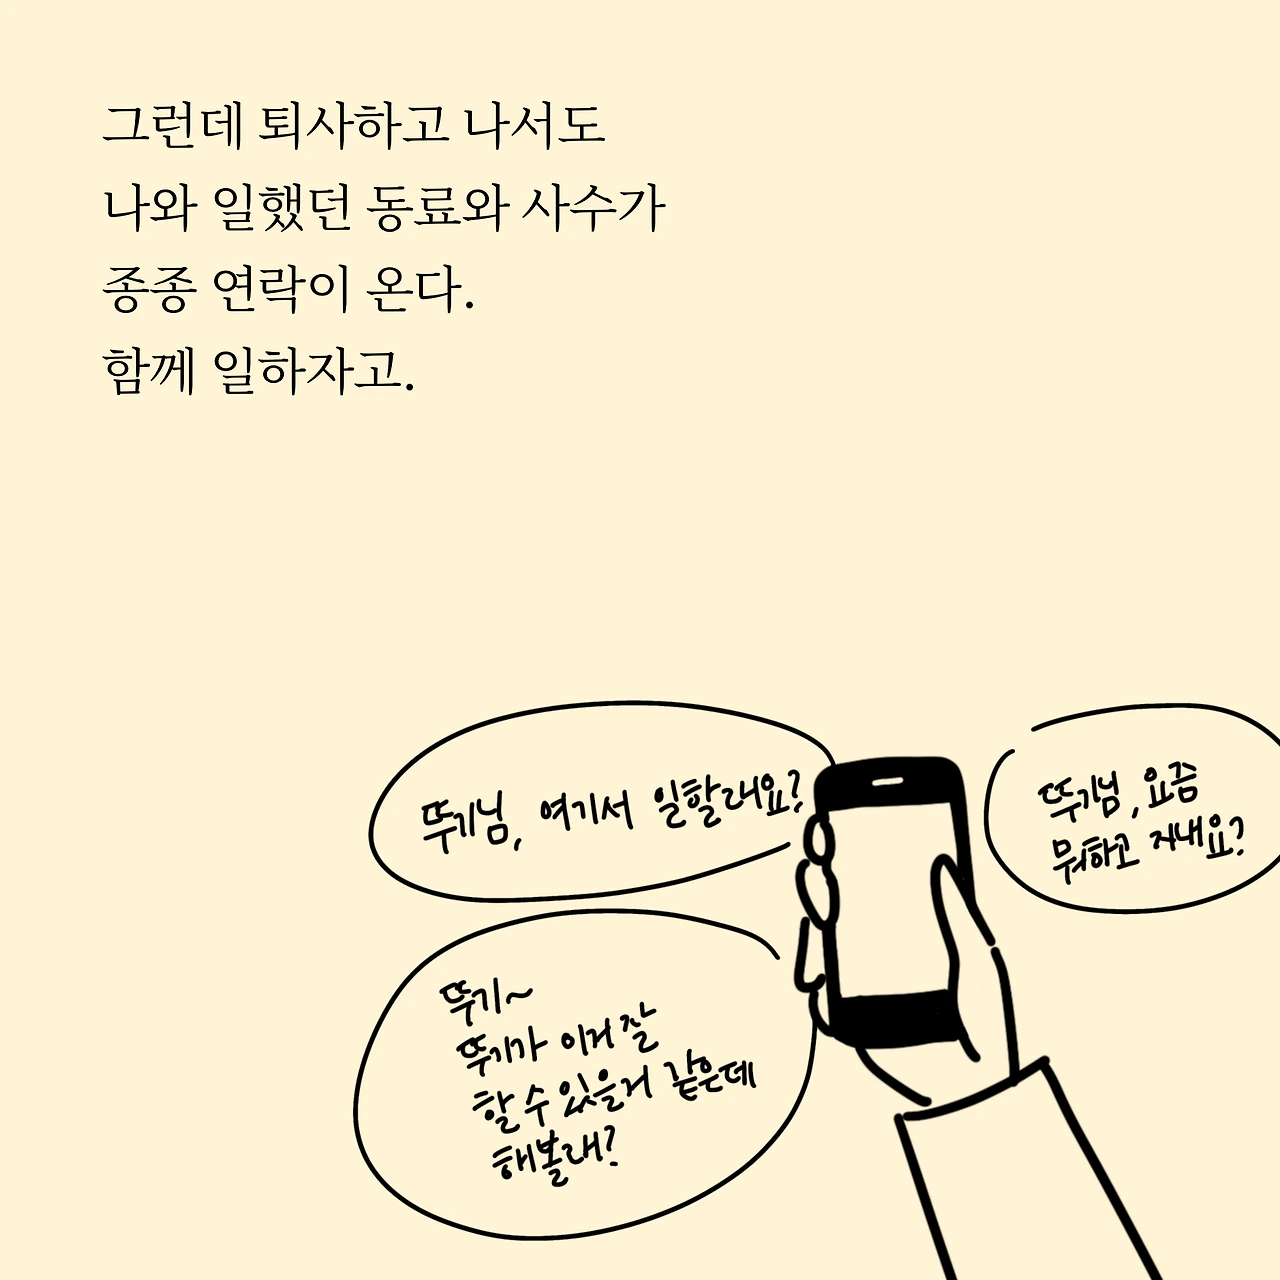 그런데 퇴사하고 나서도
나와 일했던 동료와 사수가
종종 연락이 온다.
함께 일하자고.
뚜기님, 여기서 일할래요?
뚜기님, 요즘
뭐하고 지내요?
뚜기~
뚜기가 이거 잘
할 수 있을거 같은데
해볼래?